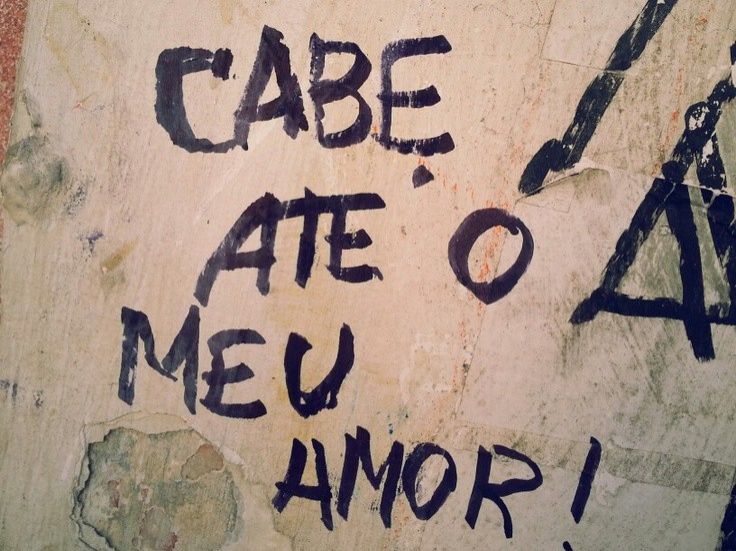 CABE
ATÉ O
MEU
AMOR!